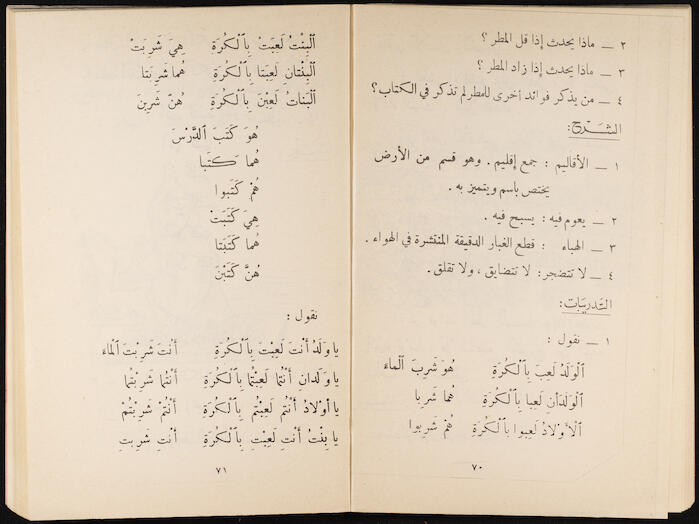 ٢ — ماذا يحدث إذا قل المطر ؟
٣ — ماذا يحدث إذا زاد المطر ؟
٤ — من يذكر فوائد أخرى للمطر لم تذكر في الكتاب؟
الشرح:
١ — الأقاليم : جمع إقليم . وهو قسم من الأرض
يختص باسم ويتميز به .
٢ — يعوم فيه : يسبح فيه .
٣ — الهباء : قطع الغبار الدقيقة المنتشرة في الهواء .
٤ — لا تتضجر: لا تتضايق ، ولا تقلق .
التدريبات:
١ — نقول :
اَلْوَلَدُ لَعِبَ بِالْكُرَةِ هُوَ شَرِبَ اَلْماء
اَلْوَلَدَانِ لَعِبا بِالْكُرَةِ هُما شَرِبا
اَلْأَوْلادُ لَعِبوا بِالْكُرَةِ هُمْ شَرِبوا
٧٠
اَلْبِنْتُ لَعِبَتْ بِالْكُرَةِ هِيَ شَرِبَتْ
اَلْبِنْتانِ لَعِبَتا بِالْكُرَةِ هُما شَرِبَتا
اَلْبَناتُ لَعِبْنَ بِالْكُرَةِ هُنَّ شَرِبْنَ
هُوَ كَتَبَ الدَّرْسَ
هُما كَتَبا
هُمْ كَتَبوا
هِيَ كَتَبَتْ
هُما كَتَبَتا
هُنَّ كَتَبْنَ
نقول :
يا وَلَدُ أَنْتَ لَعِبْتَ بِالْكُرَةِ أَنْتَ شَرِبْتَ اَلْماء
يا وَلَدانِ أَنْتُما لَعِبْتُما بِالْكُرَةِ أَنْتُما شَرِبْتُما
يا أَوْلادُ أَنْتُمْ لَعِبْتُمْ بِالْكُرَةِ أَنْتُمْ شَرِبْتُمْ
يا بِنْتُ أَنْتِ لَعِبْتِ بِالْكُرَةِ أَنْتِ شَرِبْتِ
٧١